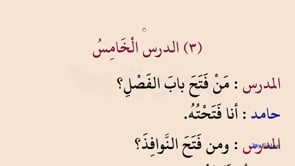 (٣) الدرس الْخَامِسُ
المدرس : مَنْ فَتَحَ بابَ الفَصْلِ؟
حامد : أنا فَتَحْتُهُ.
المدرس : ومن فَتَحَ النَّوافِذَ؟